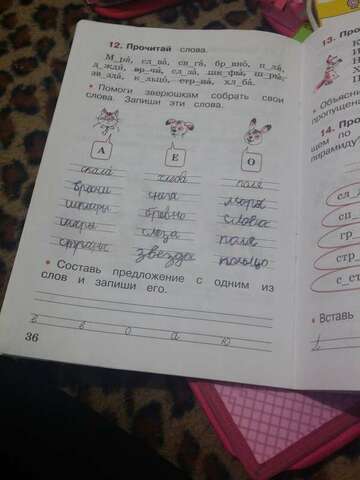 12. Прочитай слова.
М_ря́, сл_ва́, сн_га́, бр_вно́, п_ля́,
д_жди́, вр_чи́, сл_за́, шк_фы́, ш_ры́,
зв_зда́, к_льцо́, стр_на́, хл_ба́.
• Помоги зверюшкам собрать свои
слова. Запиши эти слова.
А Е О
скала хлеба поля
врачи снега моря
шкафы бревно слова
шары слеза поля
страны звезда кольцо
• Составь предложение с одним из
слов и запиши его.
в о а ю
36
13. Про
• Объясни
пропущен
14. Про
щем по
пирамиду
сл_
сп_
гр_
стр_
с_ст
• Вставь